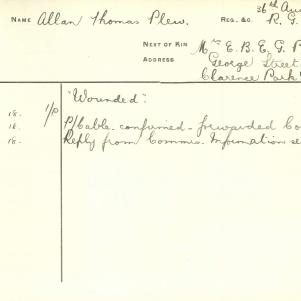 NAME Allan Thomas Plew. REG. &C. 36th Aus
R. G.
NEXT OF KIN Mrs E. B. E. G. P
ADDRESS George Street.
Clarence Park
"Wounded".
18. 1/P P/Cable confirmed - forwarded Co
18. Reply from Commis. Information se